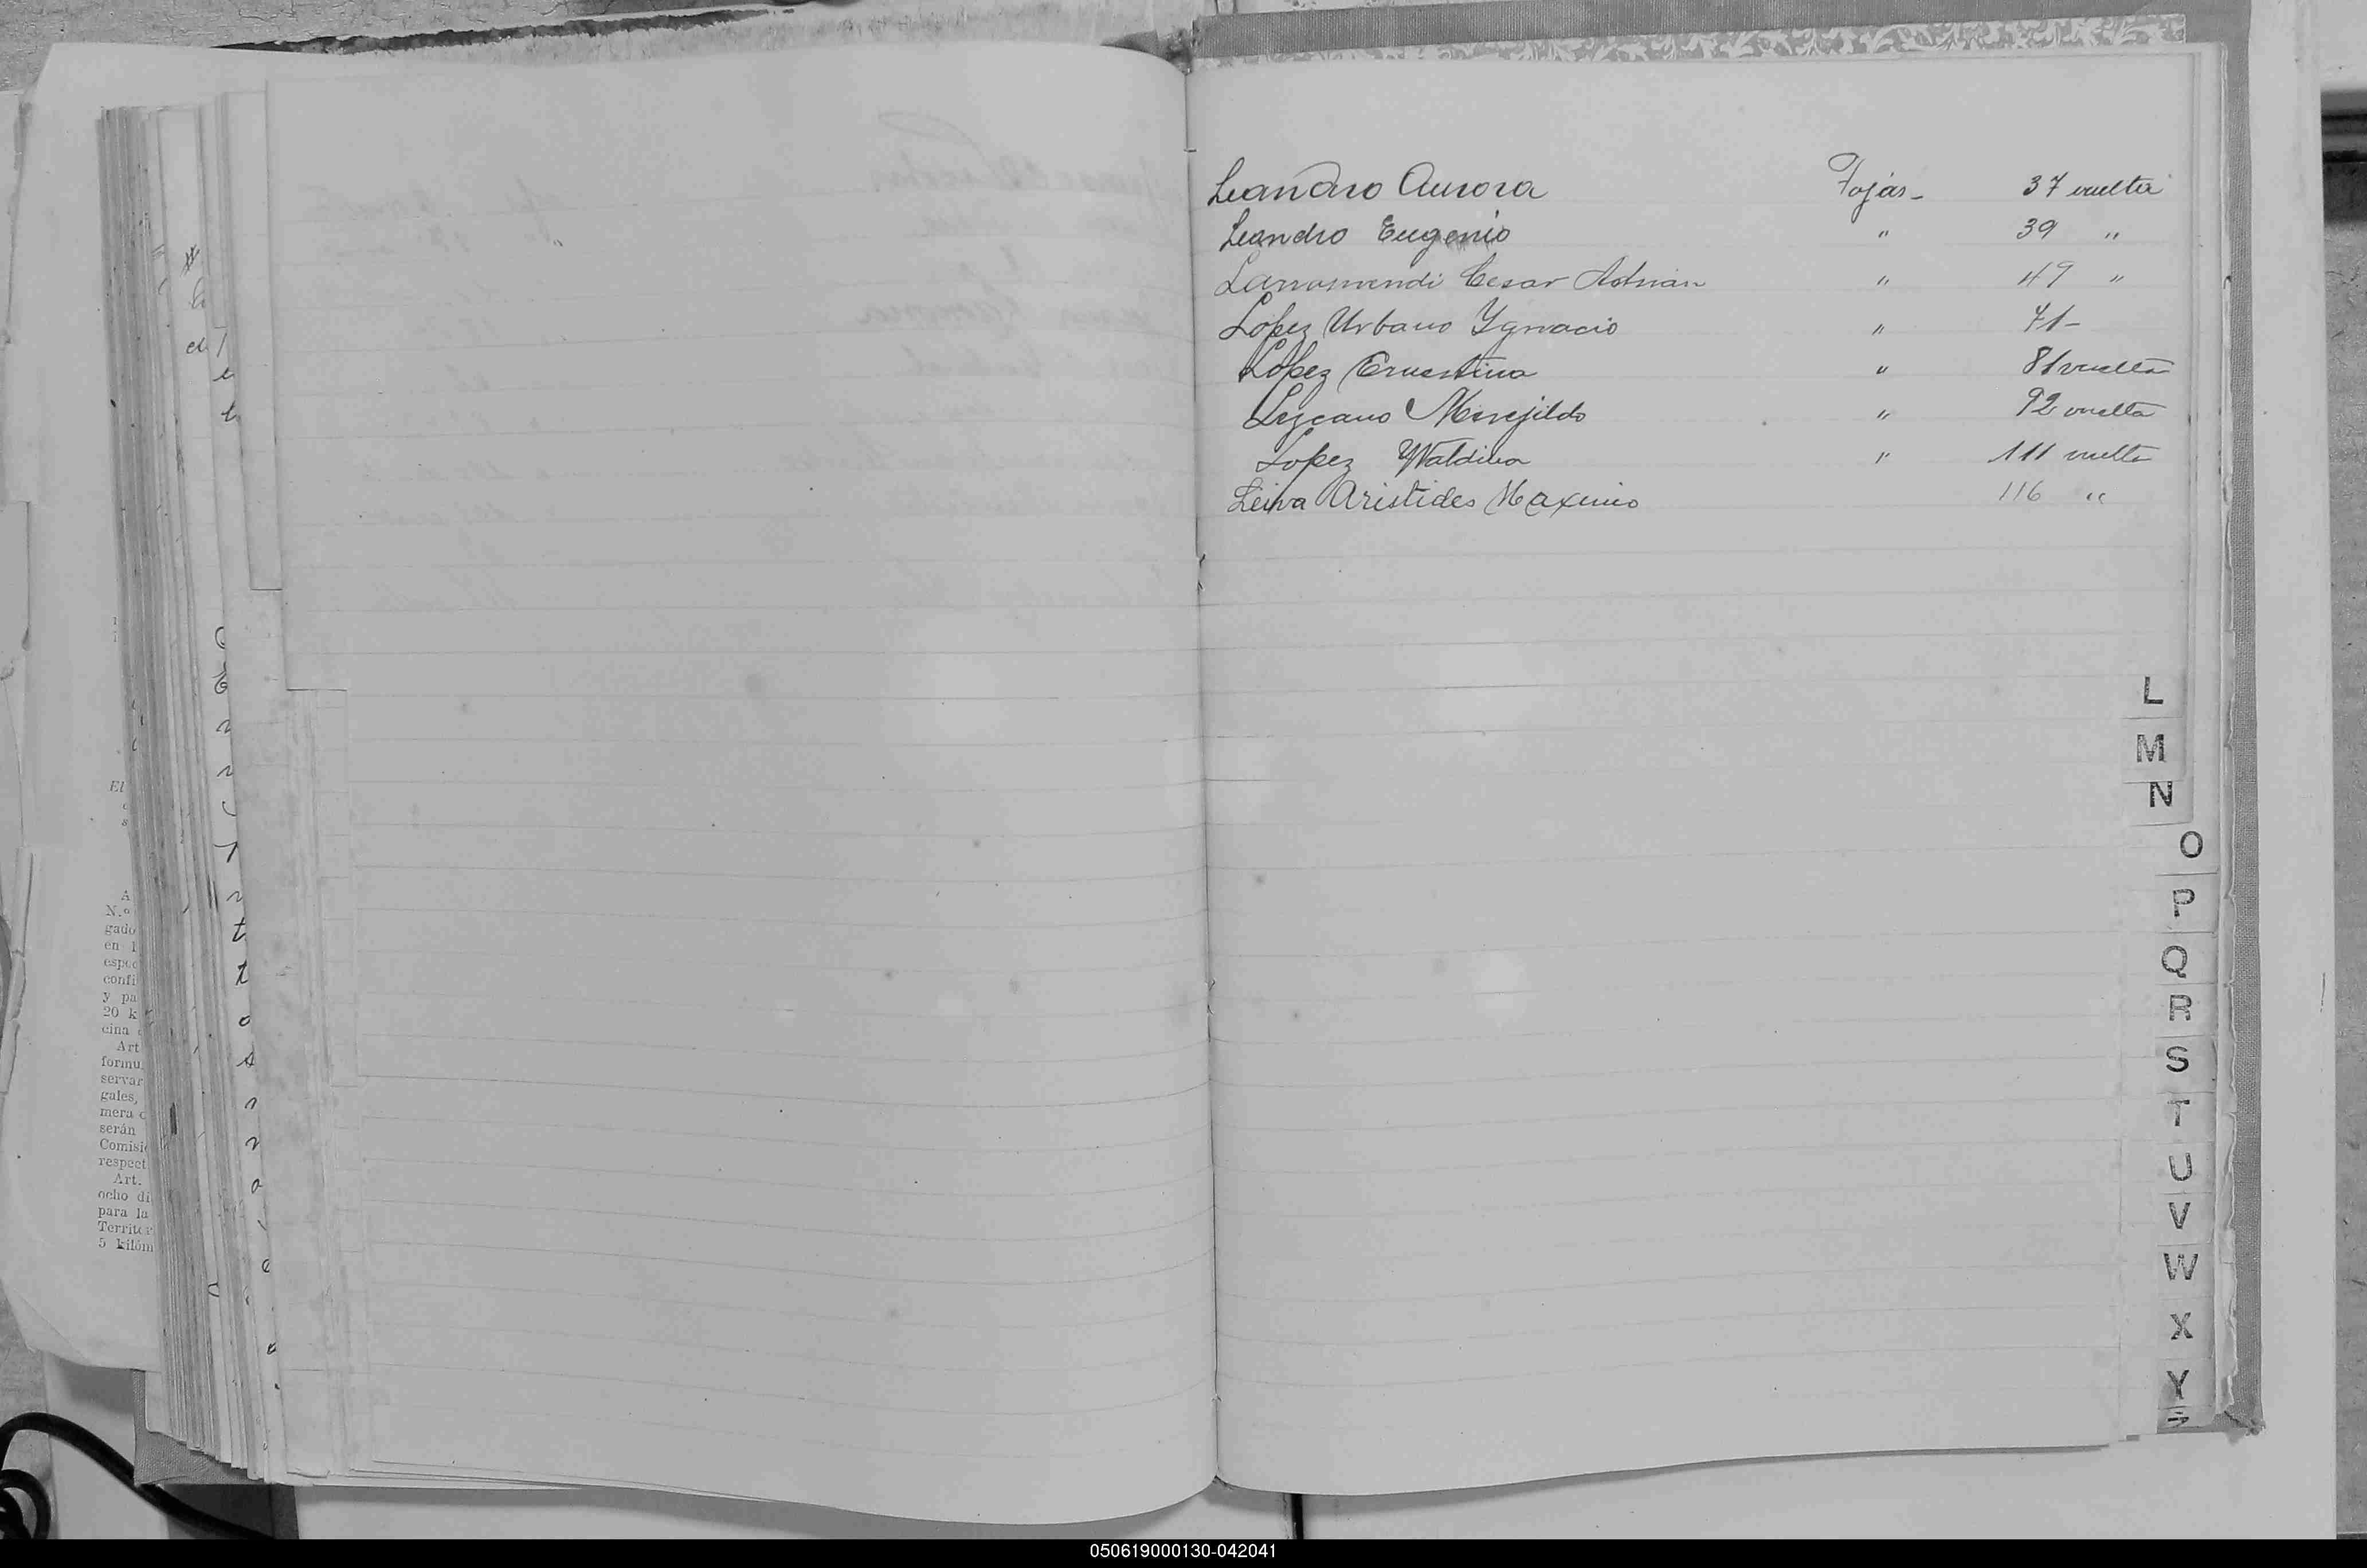 Leandro Aurora Fojas - 37 vuelta
Leandro Eugenio " 39 "
Larramendi Cesar Adrian " 49 "
Lopez Urbano Ygnacio " 71 -
Lopez Ernestina " 81 vuelta
Lezcano Merejildo " 92 vuelta
Lopez Waldina " 111 vuelta
Leiva Aristides Maximio 116 "
L
M
N
O
P
Q
R
S
T
U
V
W
X
Y
Z
El
A
N.º
gado
en l
espec
confi
y pa
20 k
cina
Art
formu
servar
gales,
mera c
serán
Comisi
respect
Art.
ocho di
para la
Territor
5 kilóm
050619000130-042041